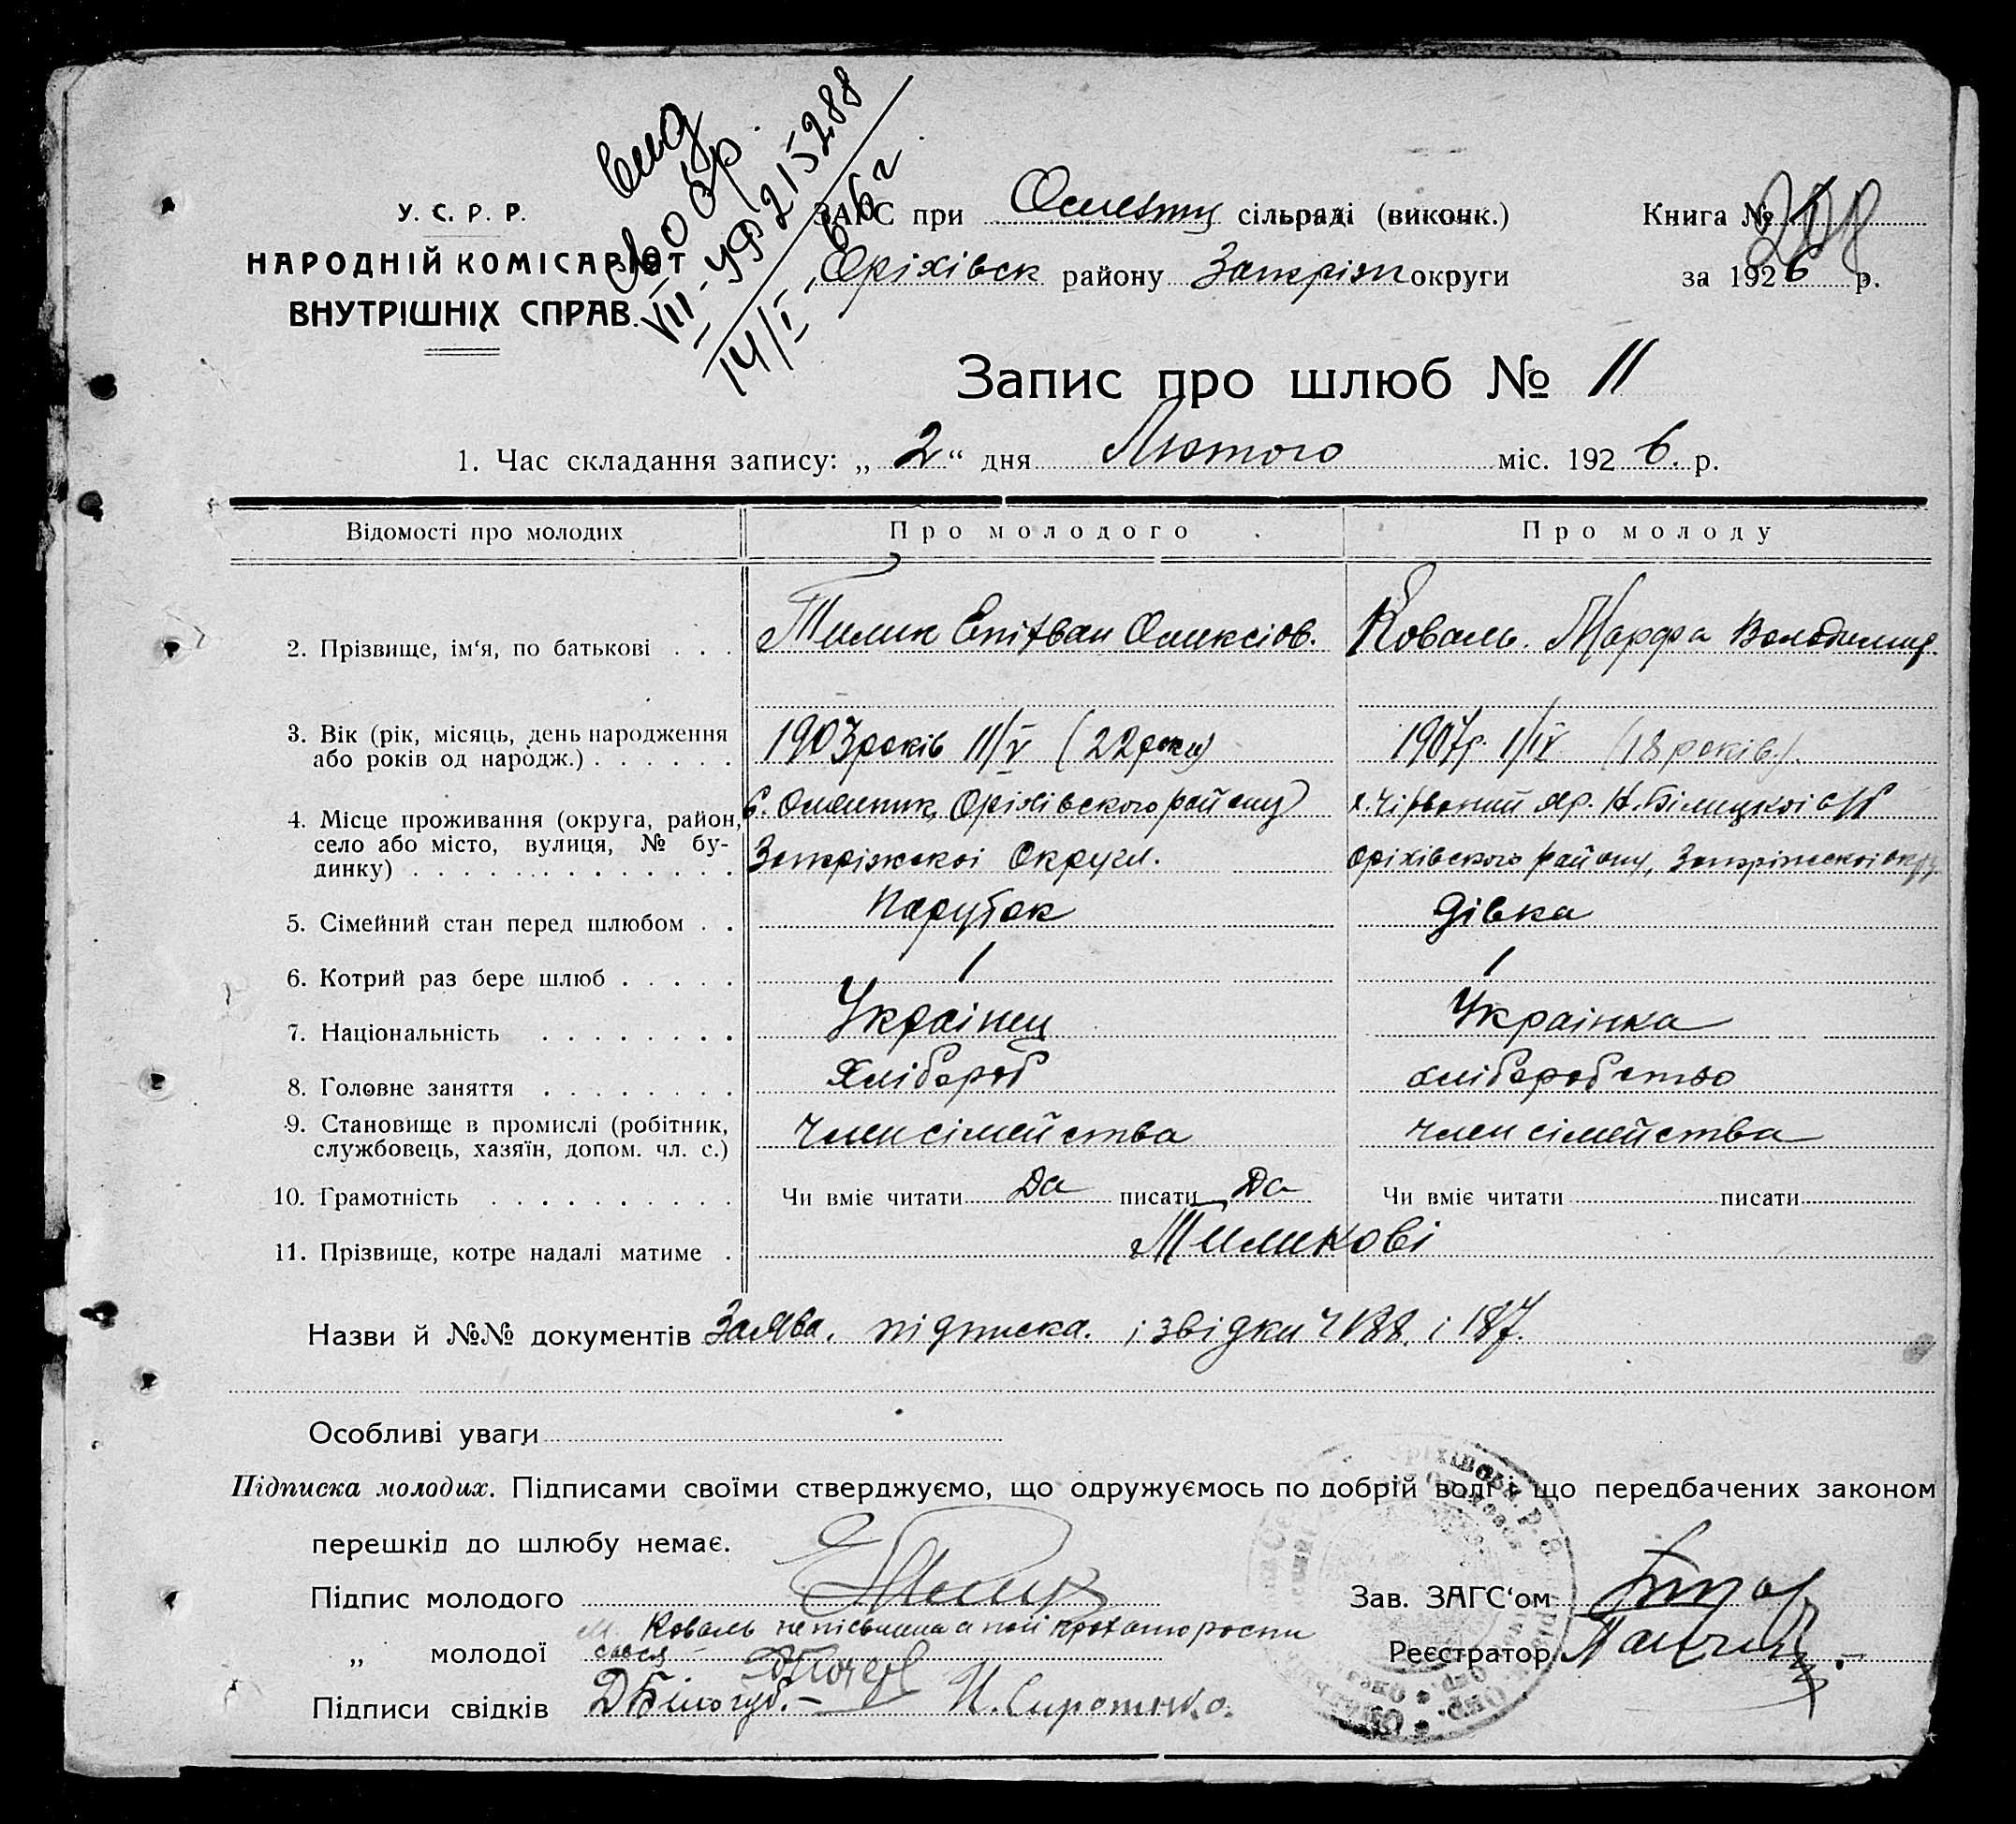 У. С. Р. Р.
НАРОДНІЙ КОМІСАРІЯТ
ВНУТРІШНІХ СПРАВ.
VIII-УФ 215288
14/I 66 г
ЗАГС при сільраді (виконк.)
Книга №
Оріхівськ району Запоріж округи
за 1926 р.
Запис про шлюб № 11
1. Час складання запису: „ 2 “ дня Лютого міс. 1926. р.
Відомості про молодих
Про молодого
Про молоду
2. Прізвище, ім‘я, по батькові . . .
Тилик Олексіов.
Коваль. Марфа Володимир.
3. Вік (рік, місяць, день народження
або років од народж.) . . . . . .
1903 років 11/V (22 роки)
1907р. 1/IV (18 років.).
4. Місце проживання (округа, район,
село або місто, вулиця, № бу-
динку) . . . . . . . . . . . . .
с. Омельник, Оріхівського району
Запоріжскоі Округи.
яр. Н. Білицькоі с/р
Оріхівського району, Запоріжскоі окр.
5. Сімейний стан перед шлюбом . .
Парубок
Дівка
6. Котрий раз бере шлюб . . . . .
1
1
7. Національність . . . . . . . .
Украінец
Украінка
8. Головне заняття . . . . . . . .
Хлібороб
хліборобство
9. Становище в промислі (робітник,
службовець, хазяїн, допом. чл. с.)
член сімейства
член сімейства
10. Грамотність . . . . . . . . . .
Чи вміє читати Да писати Да
Чи вміє читати писати
11. Прізвище, котре надалі матиме .
Тиликові
Назви й №№ документів Заява. підписка. і звідки Ч 188. і 187.
Особливі уваги
Підписка молодих. Підписами своїми стверджуємо, що одружуємось по добрій волі й що передбачених законом
перешкід до шлюбу немає.
Підпис молодого
Зав. ЗАГС‘ом
М. Коваль неписьмена а по її проханю роспи
„ молодої
сався
Реєстратор
Підписи свідків Д Білогуб. И. Сиротенко.